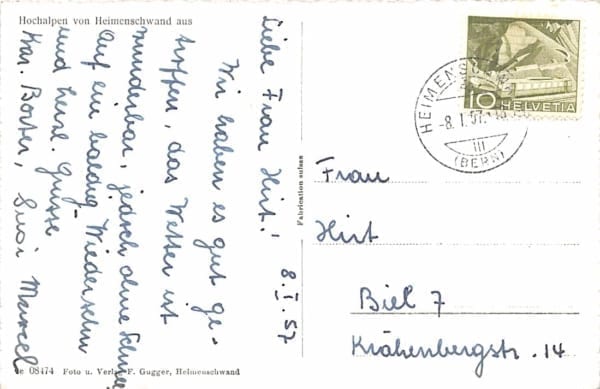 Hochalpen von Heimenschwand aus
8. I. 57
Liebe Frau Hirt!
Wir haben es gut ge-
troffen, das Wetter ist
wunderbar, jedoch ohne Schnee
Auf ein baldig. Wiedersehn
und herzl. Grüsse
Susi Marcel
Fabrication suisse
HELVETIA
10
HEIMENSCHWAND
-8. I. 57.
III
(BERN)
Frau
Hirt
Biel 7
Krähenbergstr. 14
08474 Foto u. Verlag F. Gugger, Heimenschwand